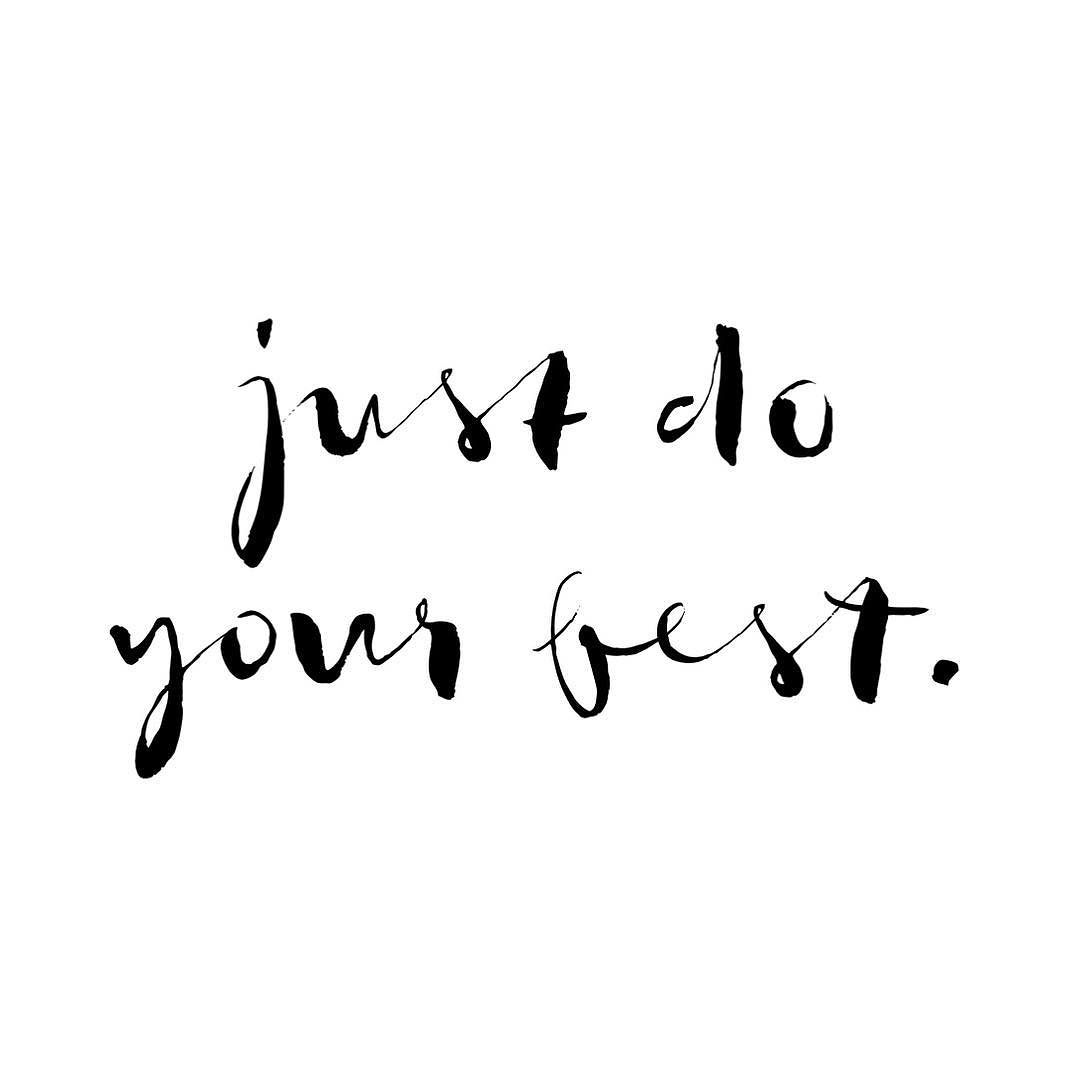 just do
your best.